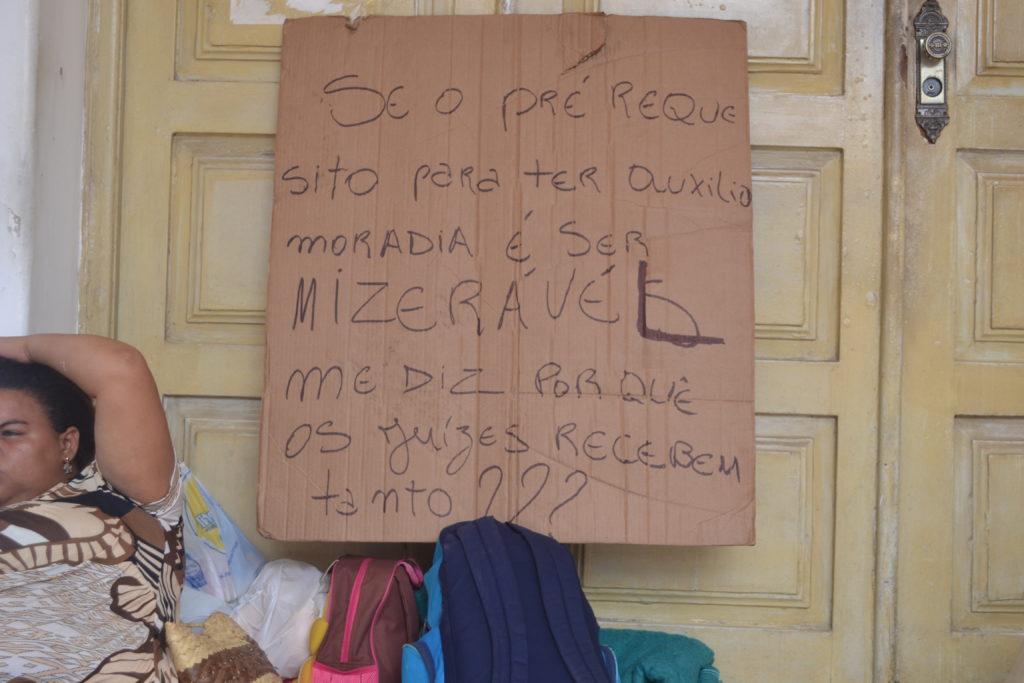 SE O PRÉ REQUE
sito para ter auxilio
MORADIA É SER
MIZERÁVÉL
ME DIZ POR QUE
OS juízes RECEBEM
tanto ???